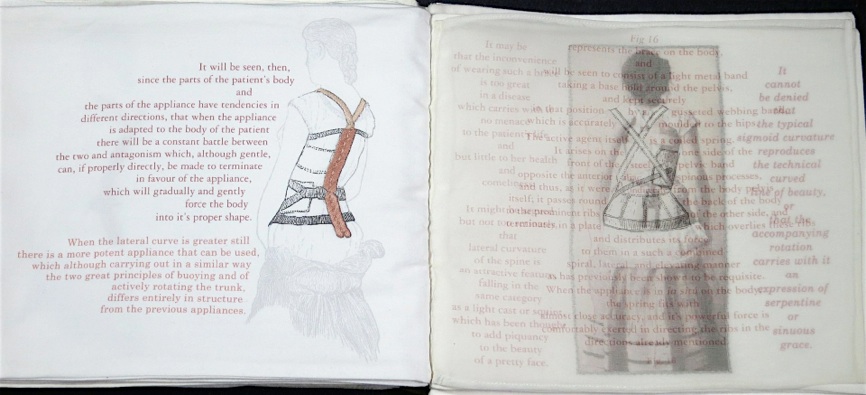 It will be seen, then,
since the parts of the patient's body
and
the parts of the appliance have tendencies in
different directions, that when the appliance
is adapted to the body of the patient
there will be a constant battle between
the two and antagonism which, although gentle,
can, if properly directly, be made to terminate
in favour of the appliance,
which will gradually and gently
force the body
into it's proper shape.
When the lateral curve is greater still
there is a more potent appliance that can be used,
which although carrying out in a similar way
the two great principles of buoying and of
actively rotating the trunk,
differs entirely in structure
from the previous appliances.
Fig 16
represents the brace on the body,
and
will be seen to consist of a light metal band
taking a base hold around the pelvis,
and kept securely
in that position by a gusseted webbing band
which is accurately moulded to the hips.
The active agent itself is a coiled spring.
It arises on the one side of the
front of the pelvic band
opposite the anterior spinous processes,
and thus, as it were
itself, it passes round the back of the body
to the prominent ribs of the other side, and
terminates in a plate which overlies these ribs
and distributes its force
to them in such a combined
spiral, lateral and elevating manner
as has previously been shown to be requisite.
When the appliance is in situ on the body,
the spring fits with
almost close accuracy, and it's powerful force is
comfortably exerted in directing the ribs in the
directions already mentioned.
It may be
that the inconvenience
of wearing such a
is too great
in a disease
which carries with it
no menace
to the patient's life
and
but little to her health
and
It might
but not to
that
lateral curvature
of the spine is
an attractive feature
falling in the
same category
as a light cast or squint
which has been thought
to add piquancy
to the beauty
of a pretty face.
It
cannot
be denied
that
the typical
sigmoid curvature
reproduces
the technical
curved
line of beauty,
or
that the
accompanying
rotation
carries with it
an
expression of
serpentine
or
sinuous
grace.